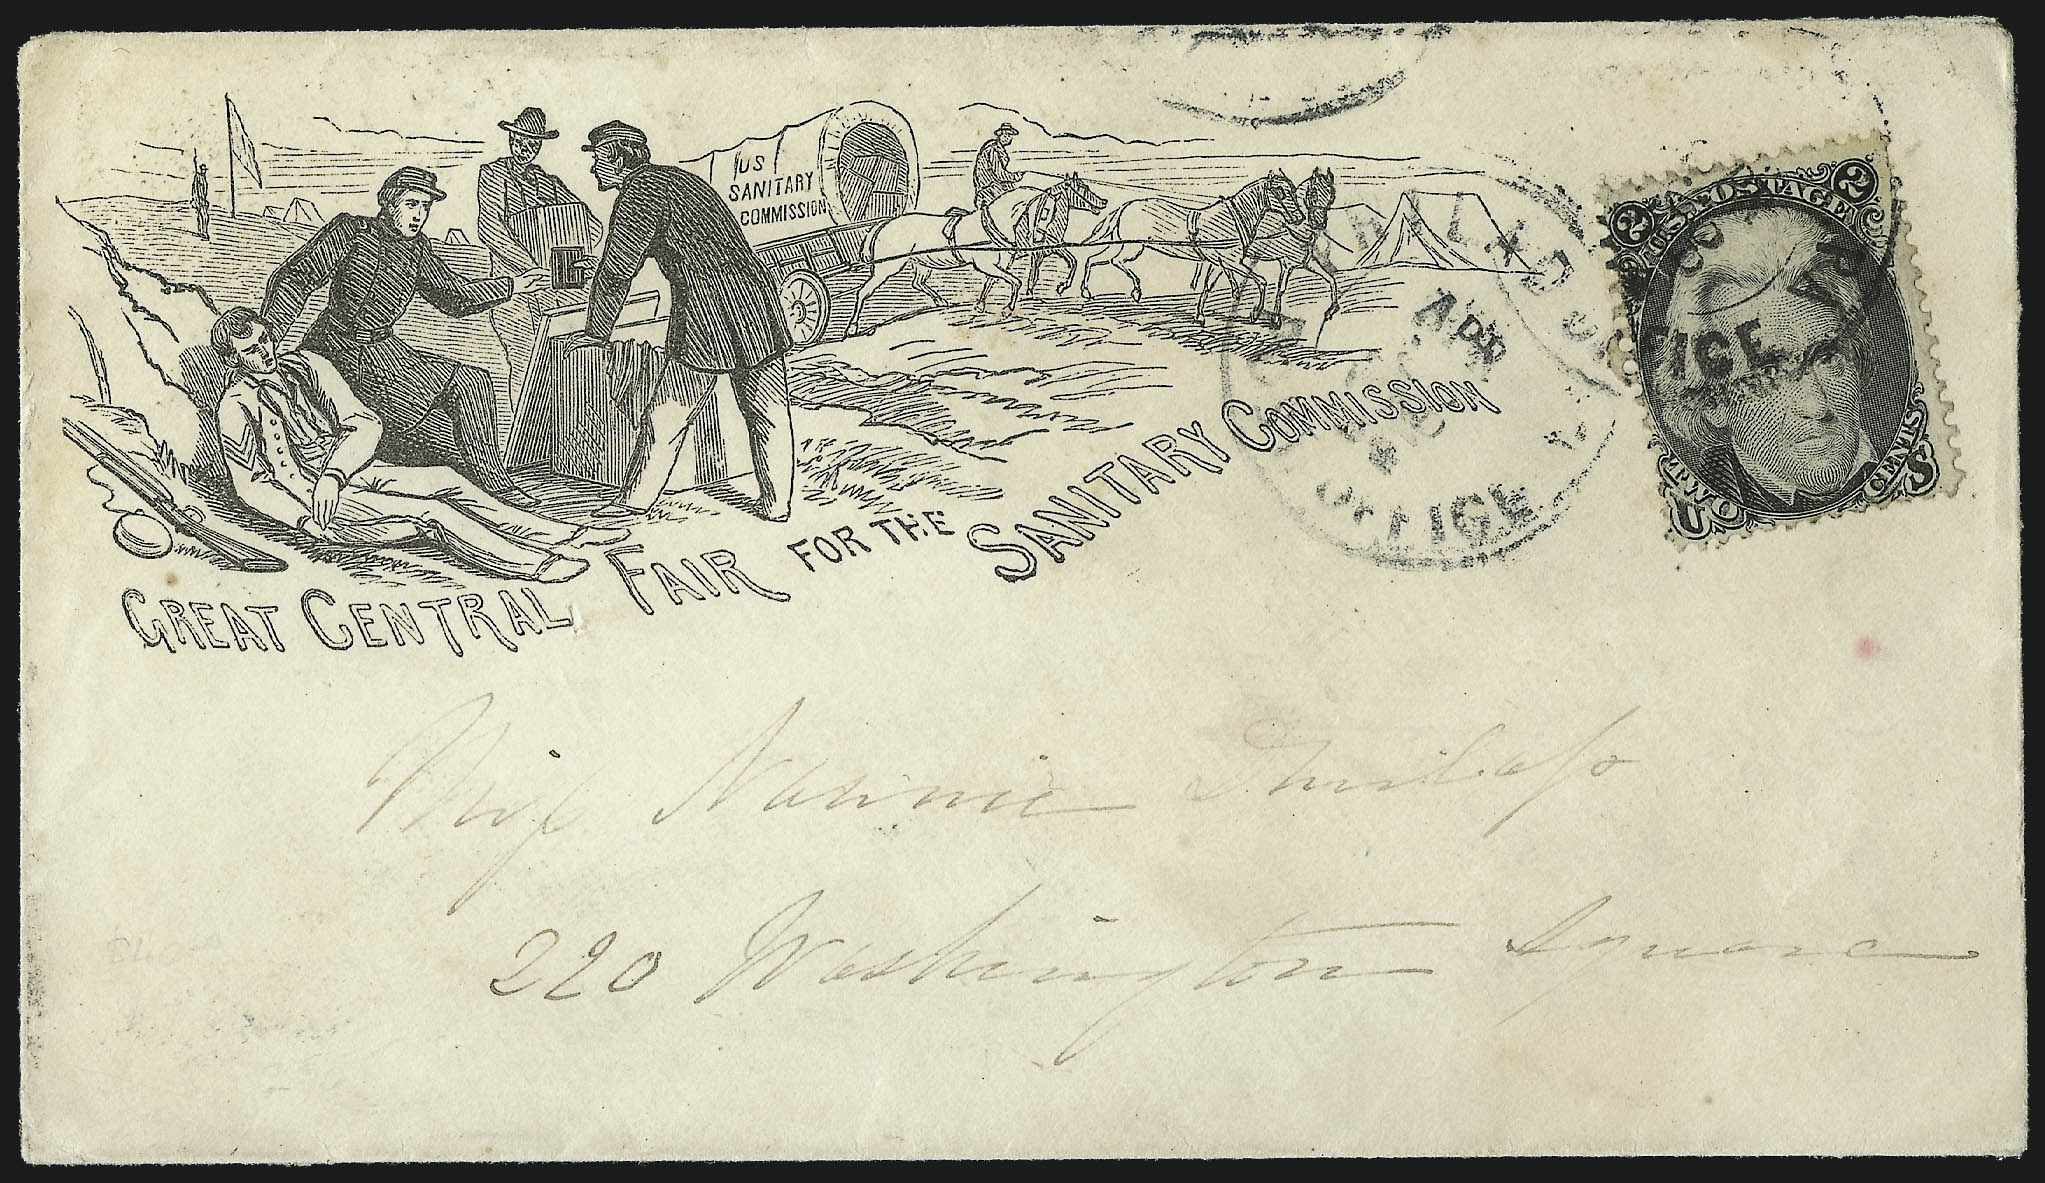 US
SANITARY
COMMISSION
GREAT CENTRAL FAIR FOR THE SANITARY COMMISSION
U.S. POSTAGE
2 2
TWO CENTS
U S
APR
OFFICE
Miss Nannie Dunlap
220 Washington Square